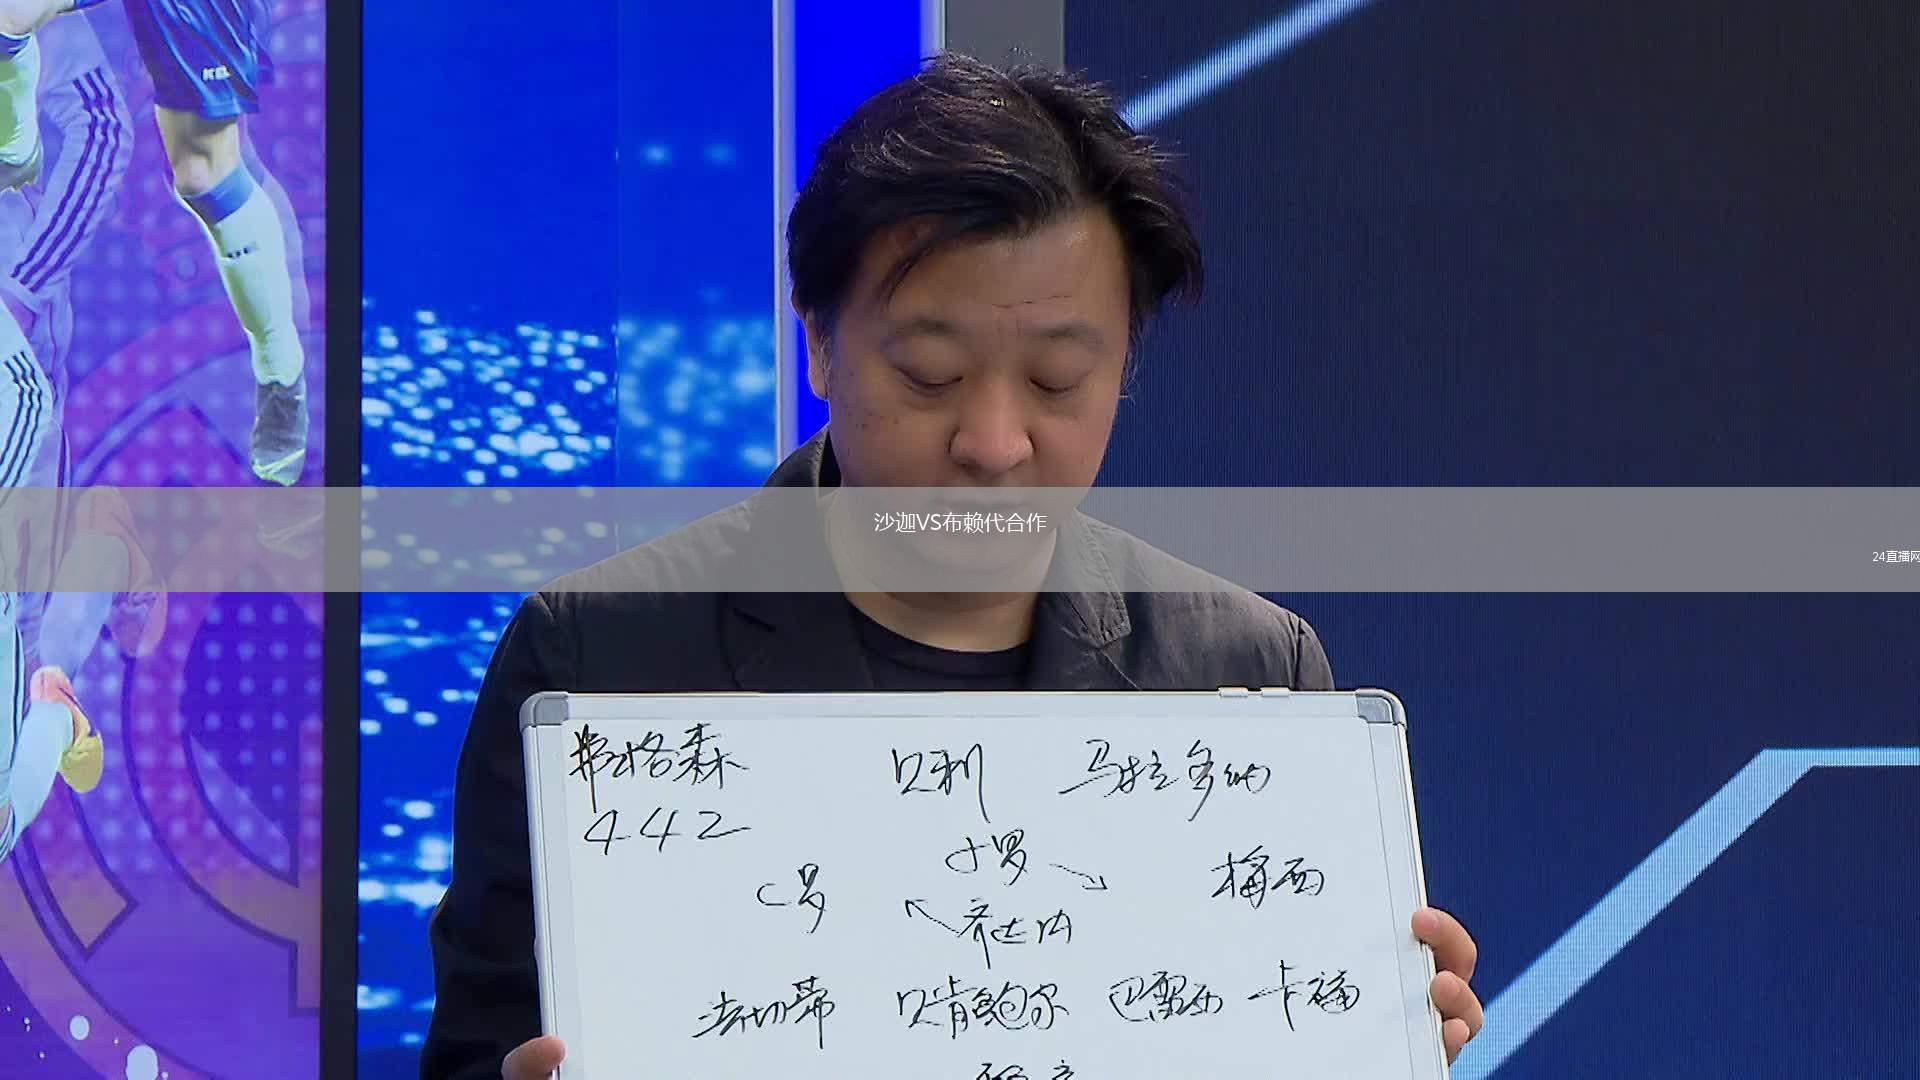 KEL
沙迦VS布赖代合作
24直播网
弗格森 贝利 马拉多纳
442
小罗
C罗 梅西
齐达内
法切蒂 贝肯鲍尔 巴雷西 卡福